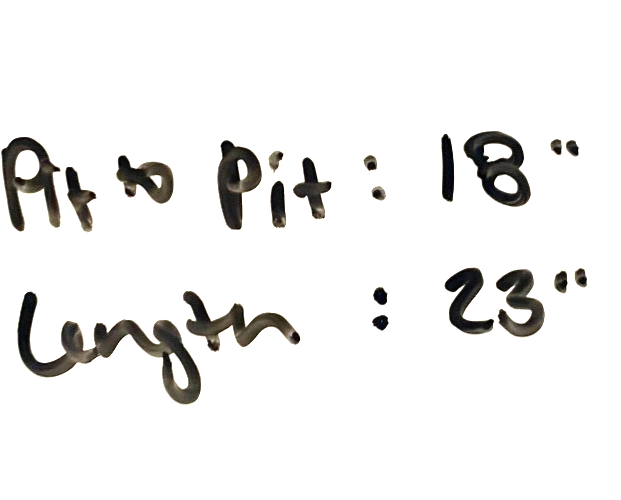 Pit to Pit : 18"
Length : 23"